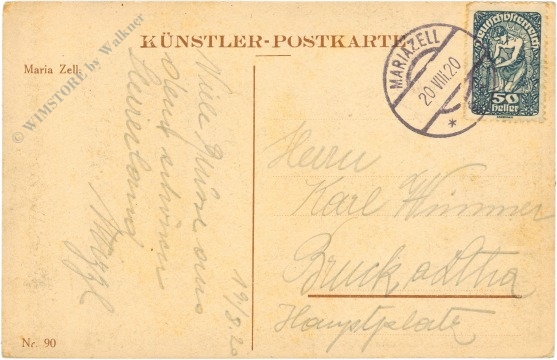 KÜNSTLER-POSTKARTE
Maria Zell.
© WIMSTORE by Walkner
MARIAZELL
20.VIII.20
*
Deutschösterreich
50
Heller
Viele Grüße aus
dem schönen
Steirerland
19/8.20
Herrn
Karl Wimmer
Bruck a Ltha
Hauptplatz
Nr. 90